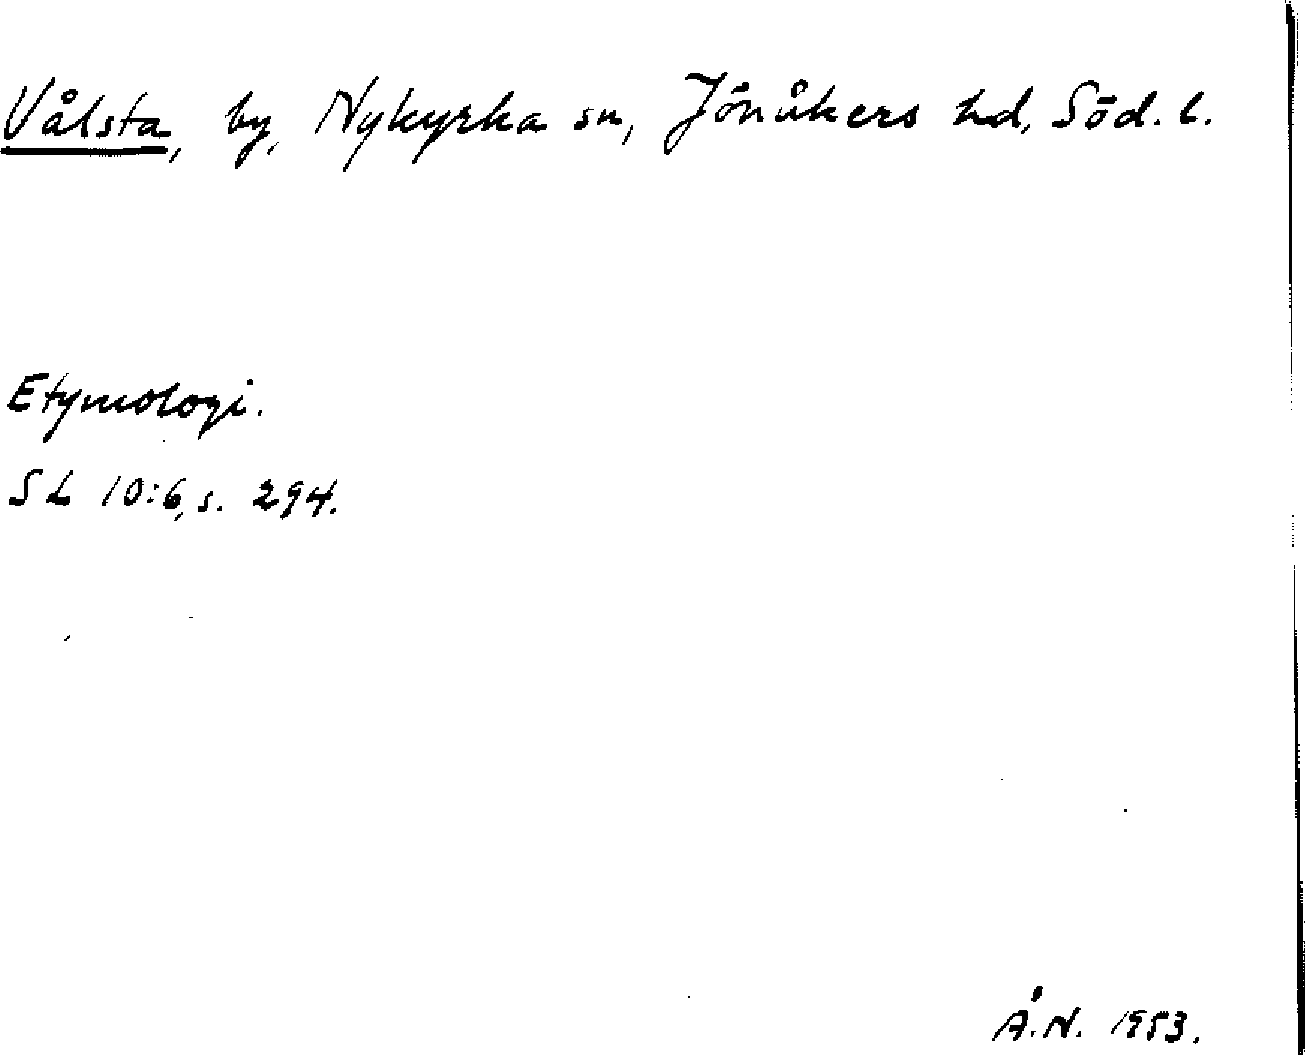 Vålsta, by, Nykyrka sn, Jönåkers hd, Söd. l.
Etymologi.
SL 10:6, s. 294.
Å.N. 1953.